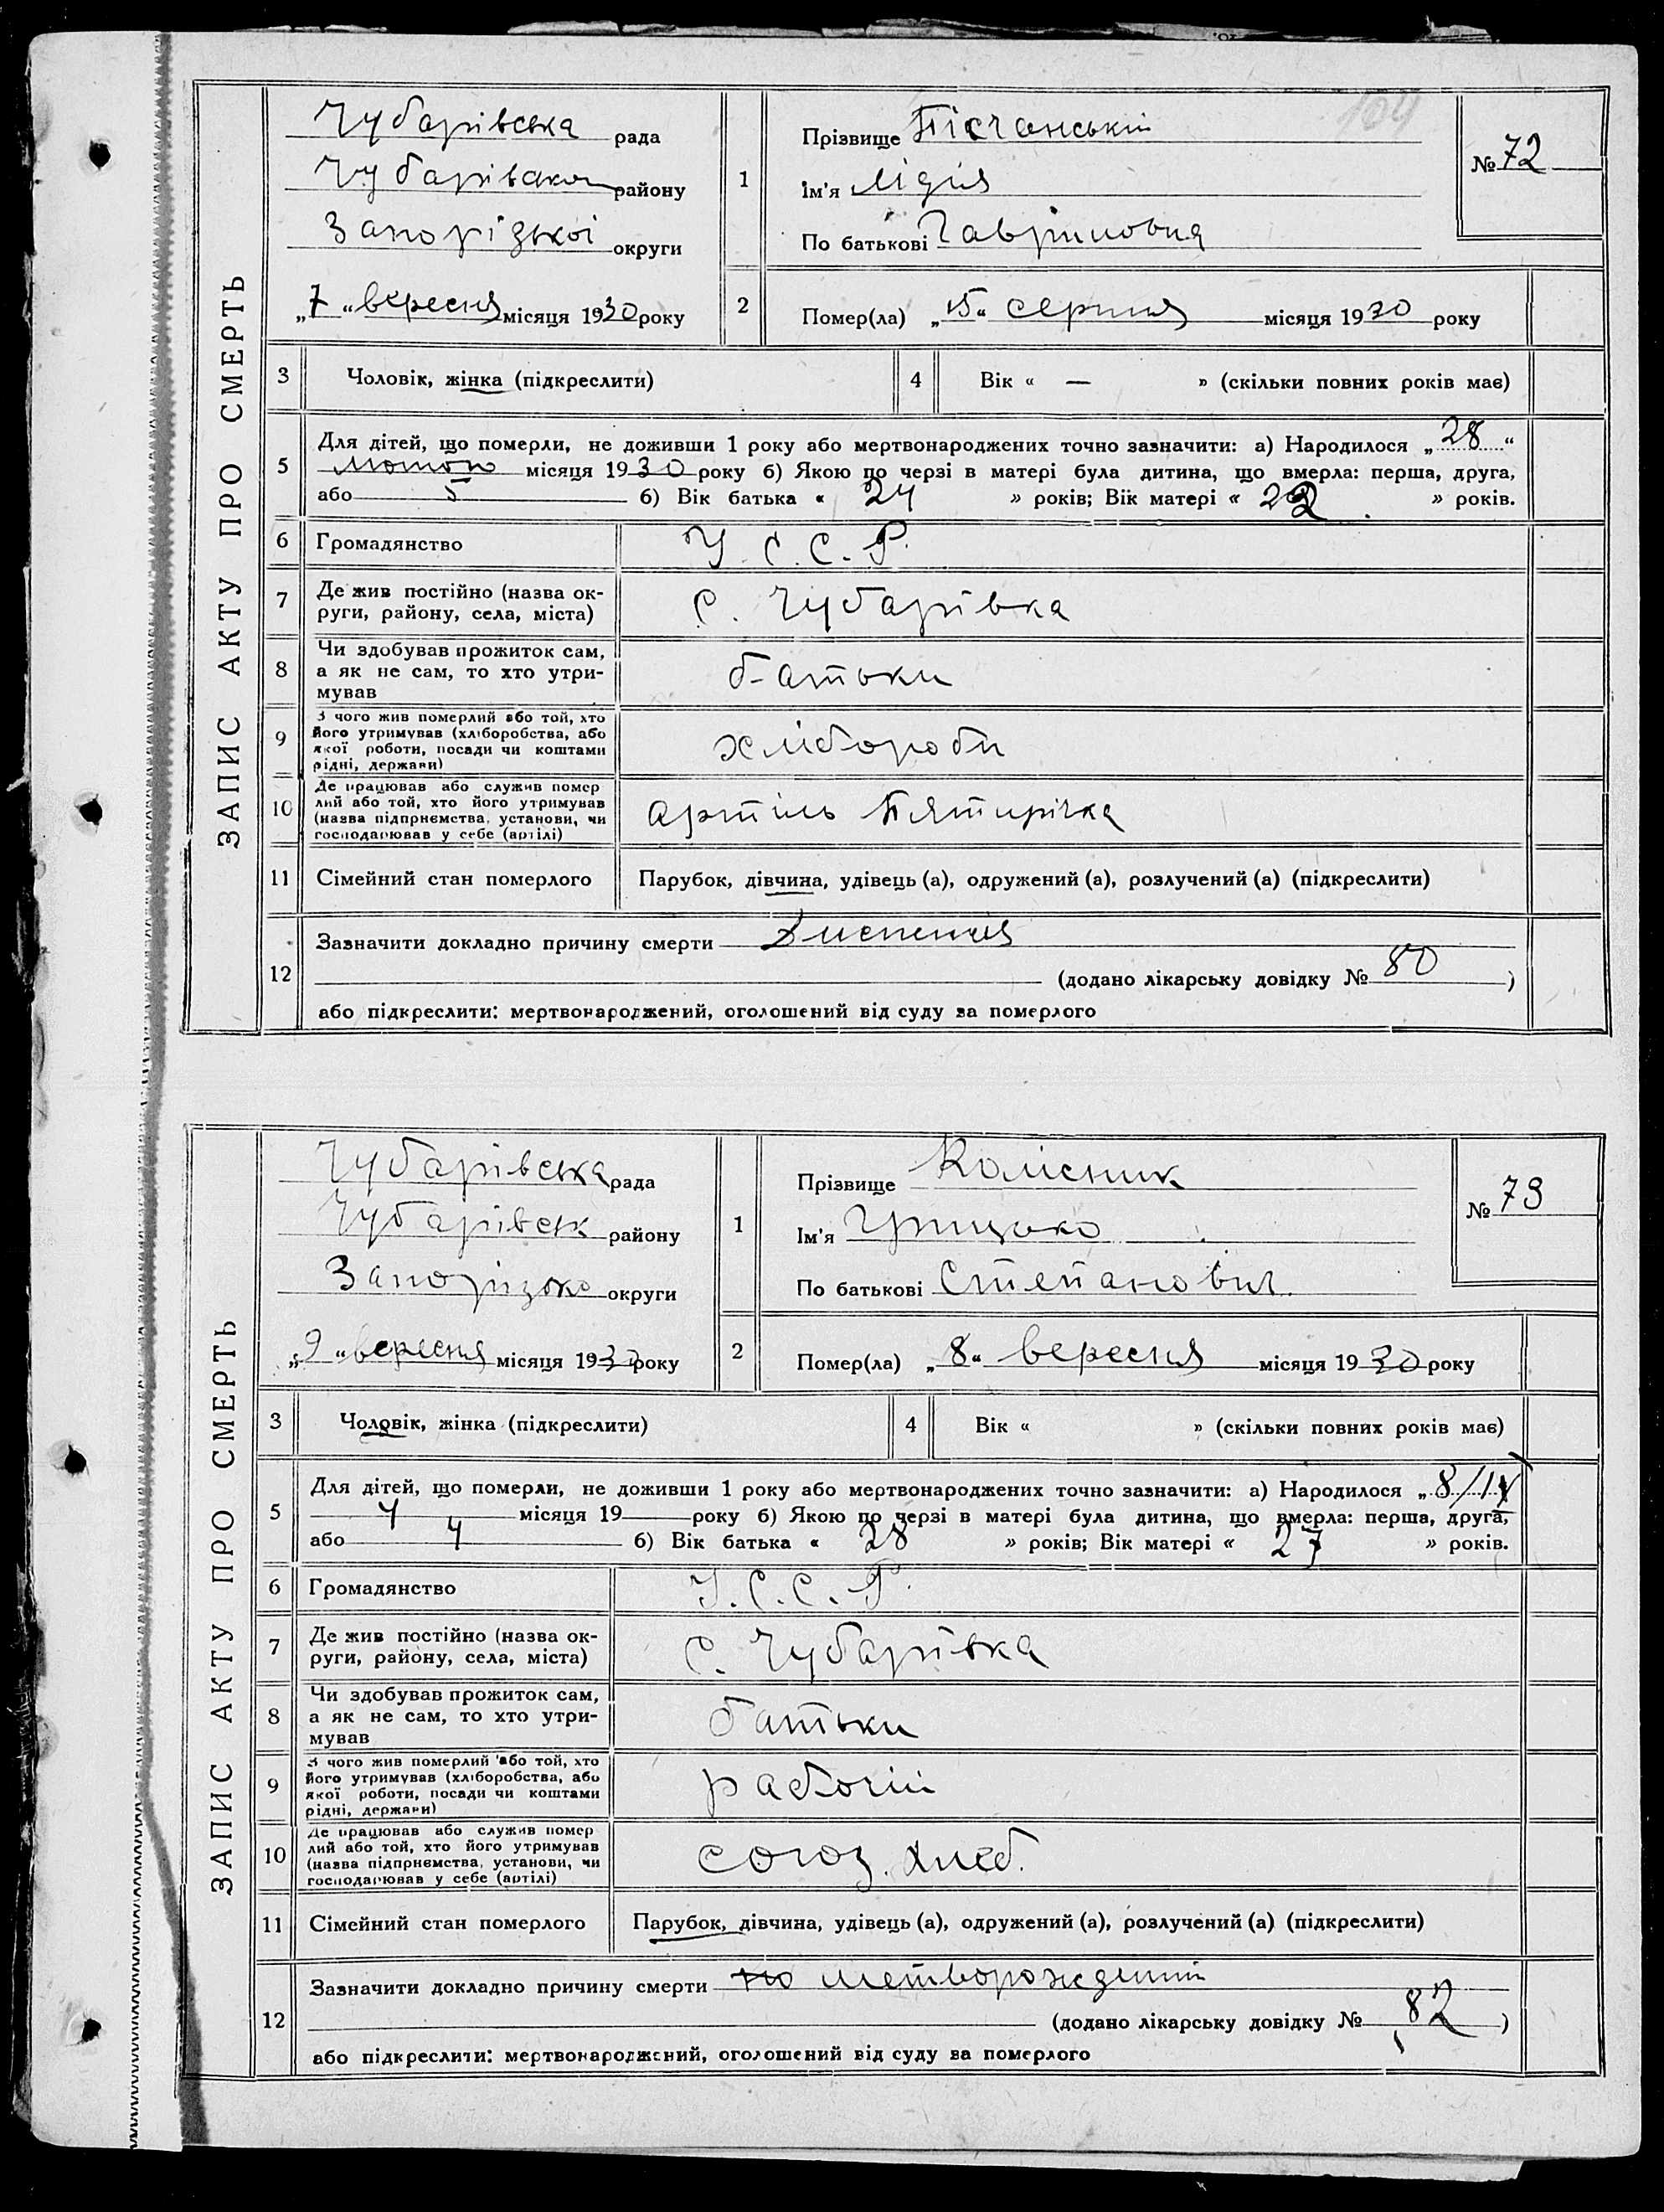 104
ЗАПИС АКТУ ПРО СМЕРТЬ
Чубарівська рада
Чубарівської району
Запорізької округи
„7“ вересня місяця 1930 року
1
Прізвище Пісчанський
Ім'я Лідия
По батькові Гавриловна
№ 72
2
Помер(ла) „15“ серпня місяця 1930 року
3 Чоловік, жінка (підкреслити)
4 Вік « — » (скільки повних років має)
5 Для дітей, що померли, не доживши 1 року або мертвонароджених точно зазначити: а) Народилося „28“
лютого місяця 1930 року б) Якою по черзі в матері була дитина, що вмерла: перша, друга,
або 5 б) Вік батька « 24 » років; Вік матері « 22 » років.
6 Громадянство У.С.С.Р.
7 Де жив постійно (назва ок-
руги, району, села, міста) с. Чубарівка
8 Чи здобував прожиток сам,
а як не сам, то хто утри-
мував батьки
9 З чого жив померлий або той, хто
його утримував (хліборобства, або
якої роботи, посади чи коштами
рідні, держави) хлібороби
10 Де працював або служив помер
лий або той, хто його утримував
(назва підприємства, установи, чи
господарював у себе (артілі) артіль Пятирічка
11 Сімейний стан померлого Парубок, дівчина, удівець (а), одружений (а), розлучений (а) (підкреслити)
12 Зазначити докладно причину смерти Диспепсия
(додано лікарську довідку № 80)
або підкреслити: мертвонароджений, оголошений від суду за померлого
ЗАПИС АКТУ ПРО СМЕРТЬ
Чубарівська рада
Чубарівськ району
Запорізько округи
„9“ вересня місяця 1930 року
1
Прізвище Колісник
Ім'я Грицько
По батькові Степанович.
№ 73
2
Помер(ла) „8“ вересня місяця 1930 року
3 Чоловік, жінка (підкреслити)
4 Вік « » (скільки повних років має)
5 Для дітей, що померли, не доживши 1 року або мертвонароджених точно зазначити: а) Народилося „8/IX
4 місяця 19 року б) Якою по черзі в матері була дитина, що вмерла: перша, друга,
або 4 б) Вік батька « 28 » років; Вік матері « 27 » років.
6 Громадянство У.С.С.Р.
7 Де жив постійно (назва ок-
руги, району, села, міста) с. Чубарівка
8 Чи здобував прожиток сам,
а як не сам, то хто утри-
мував батьки
9 З чого жив померлий або той, хто
його утримував (хліборобства, або
якої роботи, посади чи коштами
рідні, держави) рабочий
10 Де працював або служив помер
лий або той, хто його утримував
(назва підприємства, установи, чи
господарював у себе (артілі) союз. хлеб.
11 Сімейний стан померлого Парубок, дівчина, удівець (а), одружений (а), розлучений (а) (підкреслити)
12 Зазначити докладно причину смерти метворожденний
(додано лікарську довідку № 82)
або підкреслити: мертвонароджений, оголошений від суду за померлого